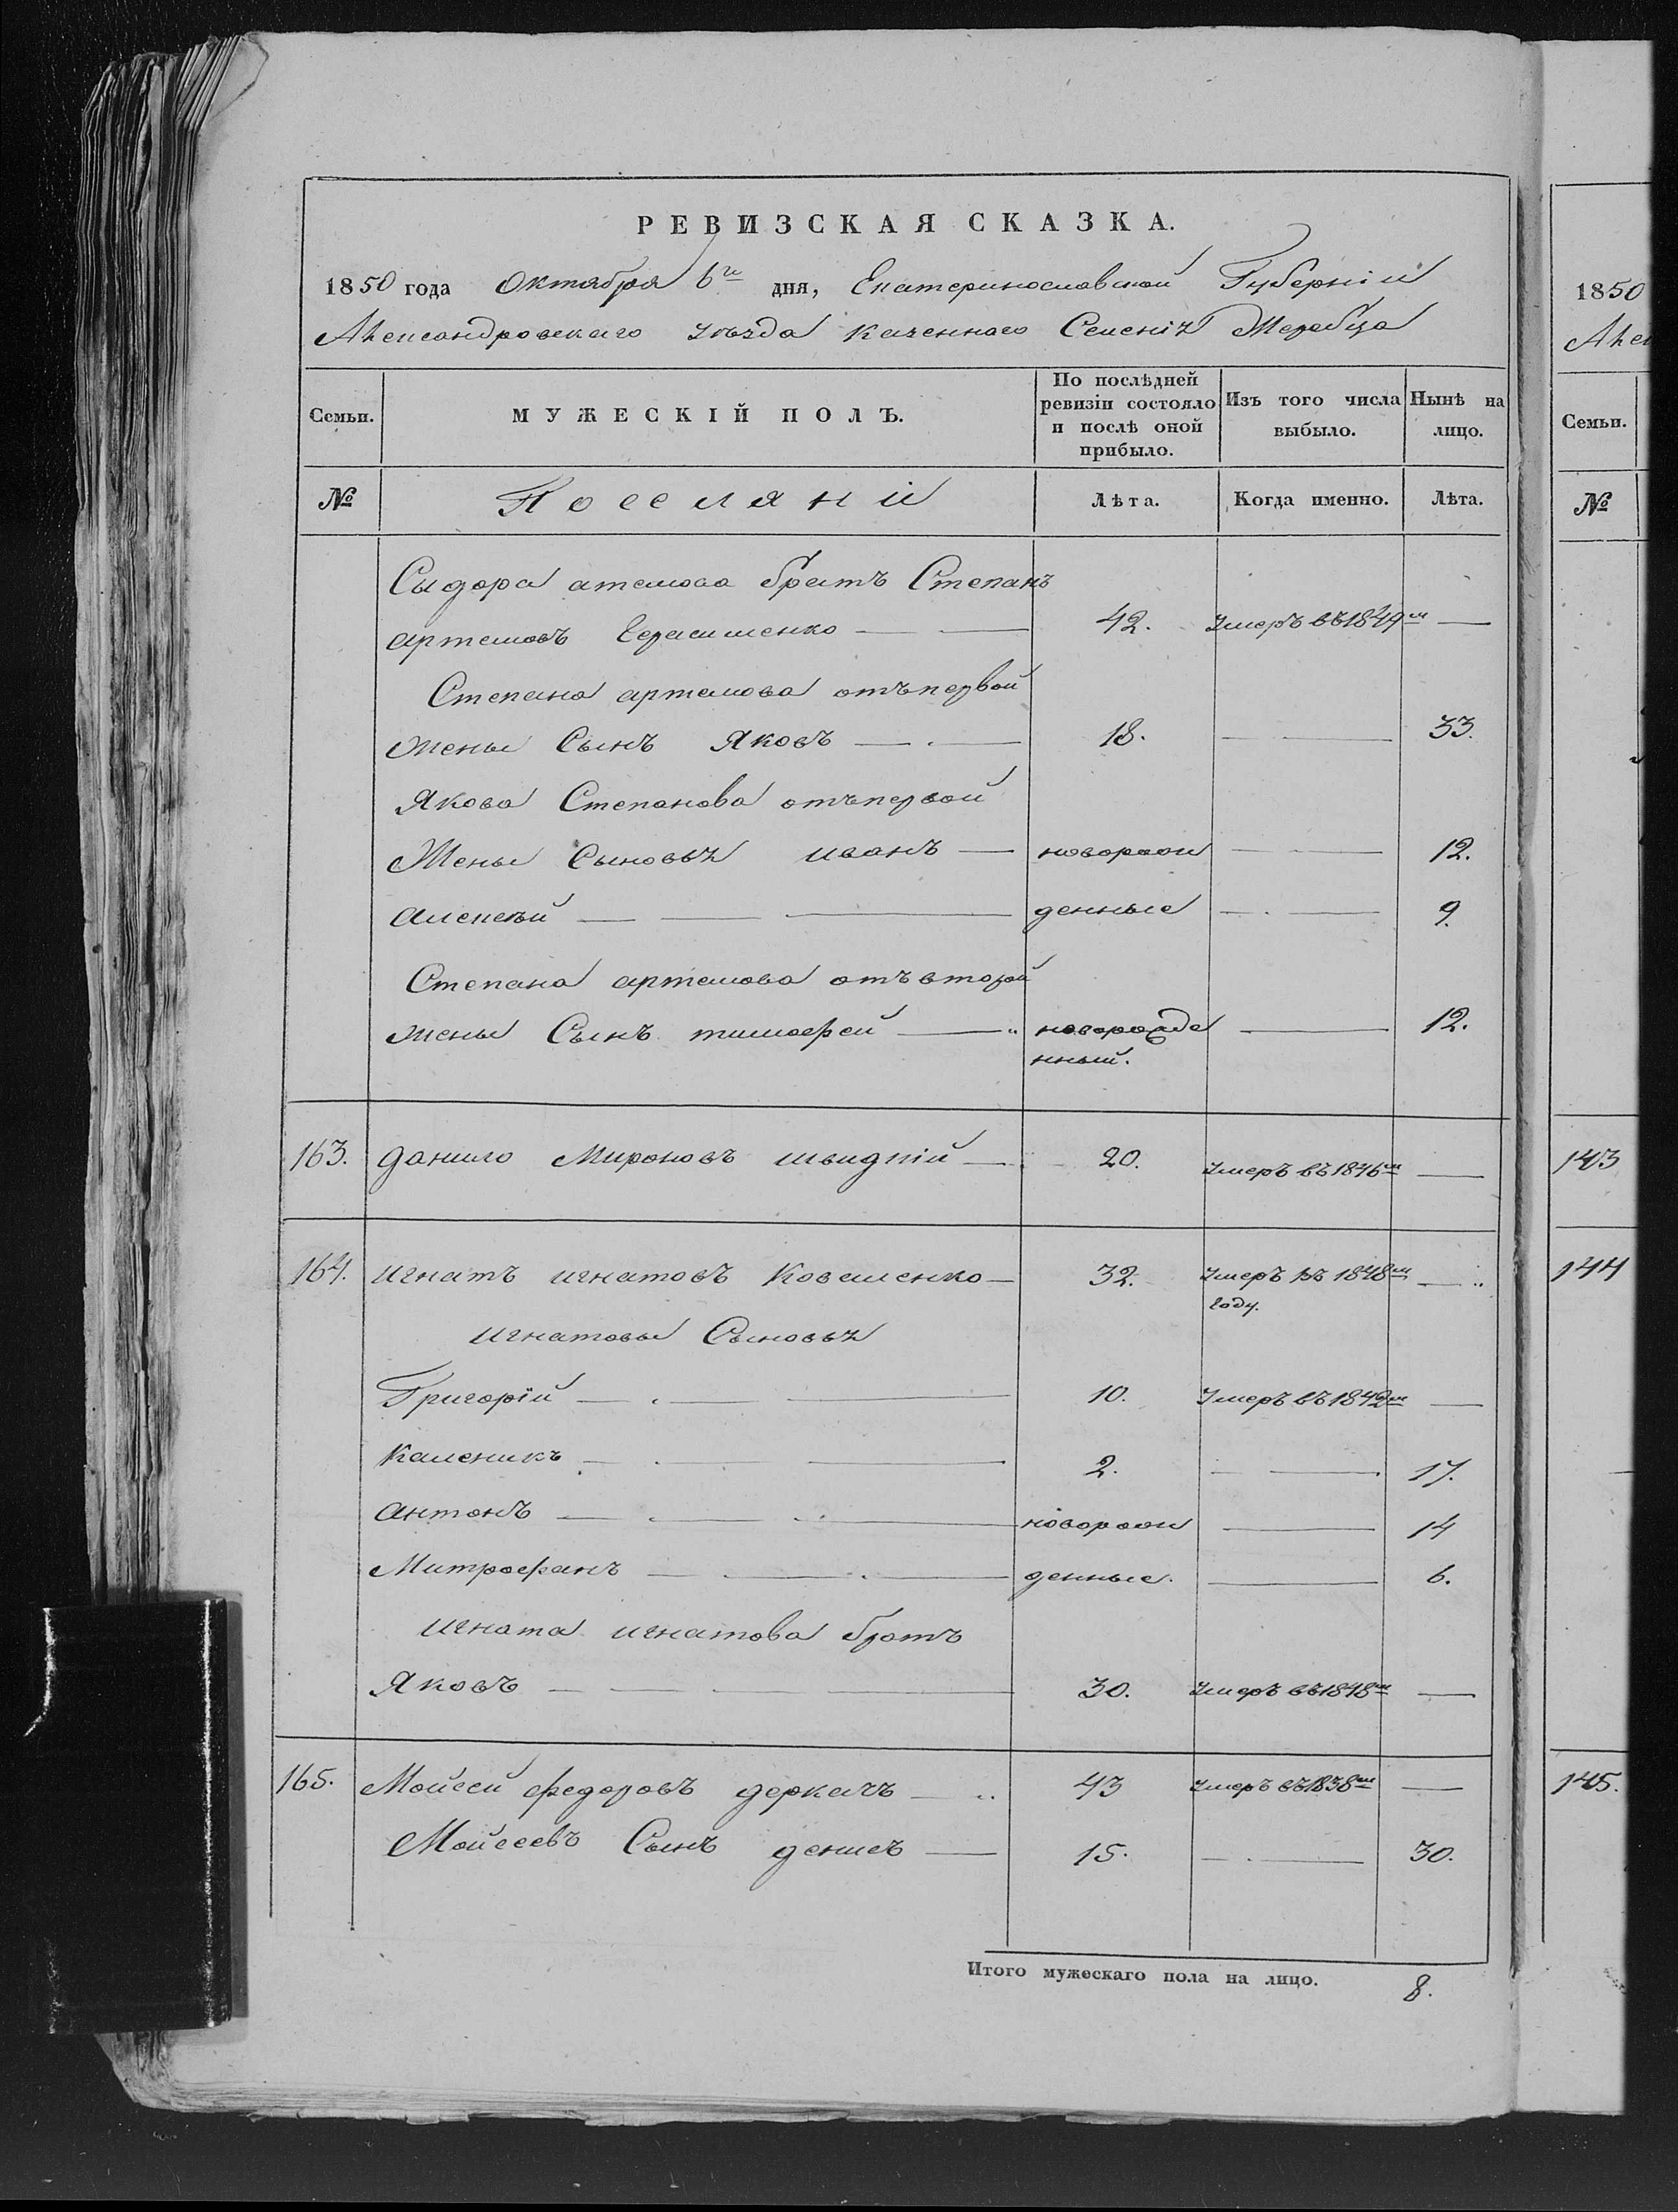 РЕВИЗСКАЯ СКАЗКА.
1850 года Октября 6го дня, Екатеринославской Губерніи
Александровскаго уѣзда казеннаго Селенія Жеребца
Семьи. МУЖЕСКІЙ ПОЛЪ. По послѣдней ревизіи состояло и послѣ оной прибыло. Изъ того числа выбыло. Нынѣ на лицо.
№ Поселяни Лѣта. Когда именно. Лѣта.
Сыдора атемова братъ Степанъ
артемовъ Герасименко 42. Умеръ въ 1849м
Степана артемова отъ первой
жены Сынъ Яковъ 18. 33.
Якова Степанова отъ первой
Жены Сыновья иванъ новорож 12.
алексѣй денные 9.
Степана артемова отъ второй
жены Сынъ тимофей новорожде 12.
нный.
163. данило Мироновъ швидкій 20. Умеръ въ 1846м
164. игнатъ игнатовъ Коваленко 32. Умеръ въ 1848м
году.
игнатовы Сыновья
Григорій 10. Умеръ въ 1842м
Каленикъ 2. 17.
антонъ новорож 14
Митрофанъ денные. 6.
игната игнатова братъ
Яковъ 30. Умеръ въ 1848м
165. Мойсей федоровъ деркачъ 43 Умеръ въ 1838м
Мойсеевъ Сынъ денисъ 15. 30.
Итого мужескаго пола на лицо. 8.
1850
Але
Семьи.
№
143
144
145.